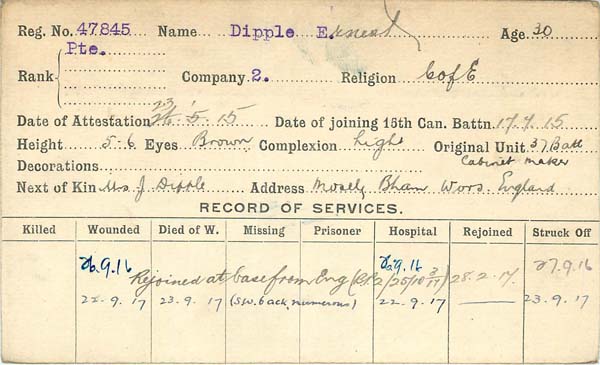 Reg. No. 47845 Name Dipple E.rnest Age 30
Pte.
Rank Company 2. Religion C of E
23
Date of Attestation 26.5.15 Date of joining 16th Can. Battn. 17.7.15
Height 5-6 Eyes Brown Complexion Light Original Unit 37 Batt
Decorations Cabinet Maker
Next of Kin Mrs J Dipple Address Mosely, Bham Wors. England
RECORD OF SERVICES.
Killed Wounded Died of W. Missing Prisoner Hospital Rejoined Struck Off
26.9.16 26.9.16 27.9.16
Rejoined at base from Eng 28.2.17.
22.9.17 23.9.17 (S.W. back, numerous) 22-9.17 23.9.17